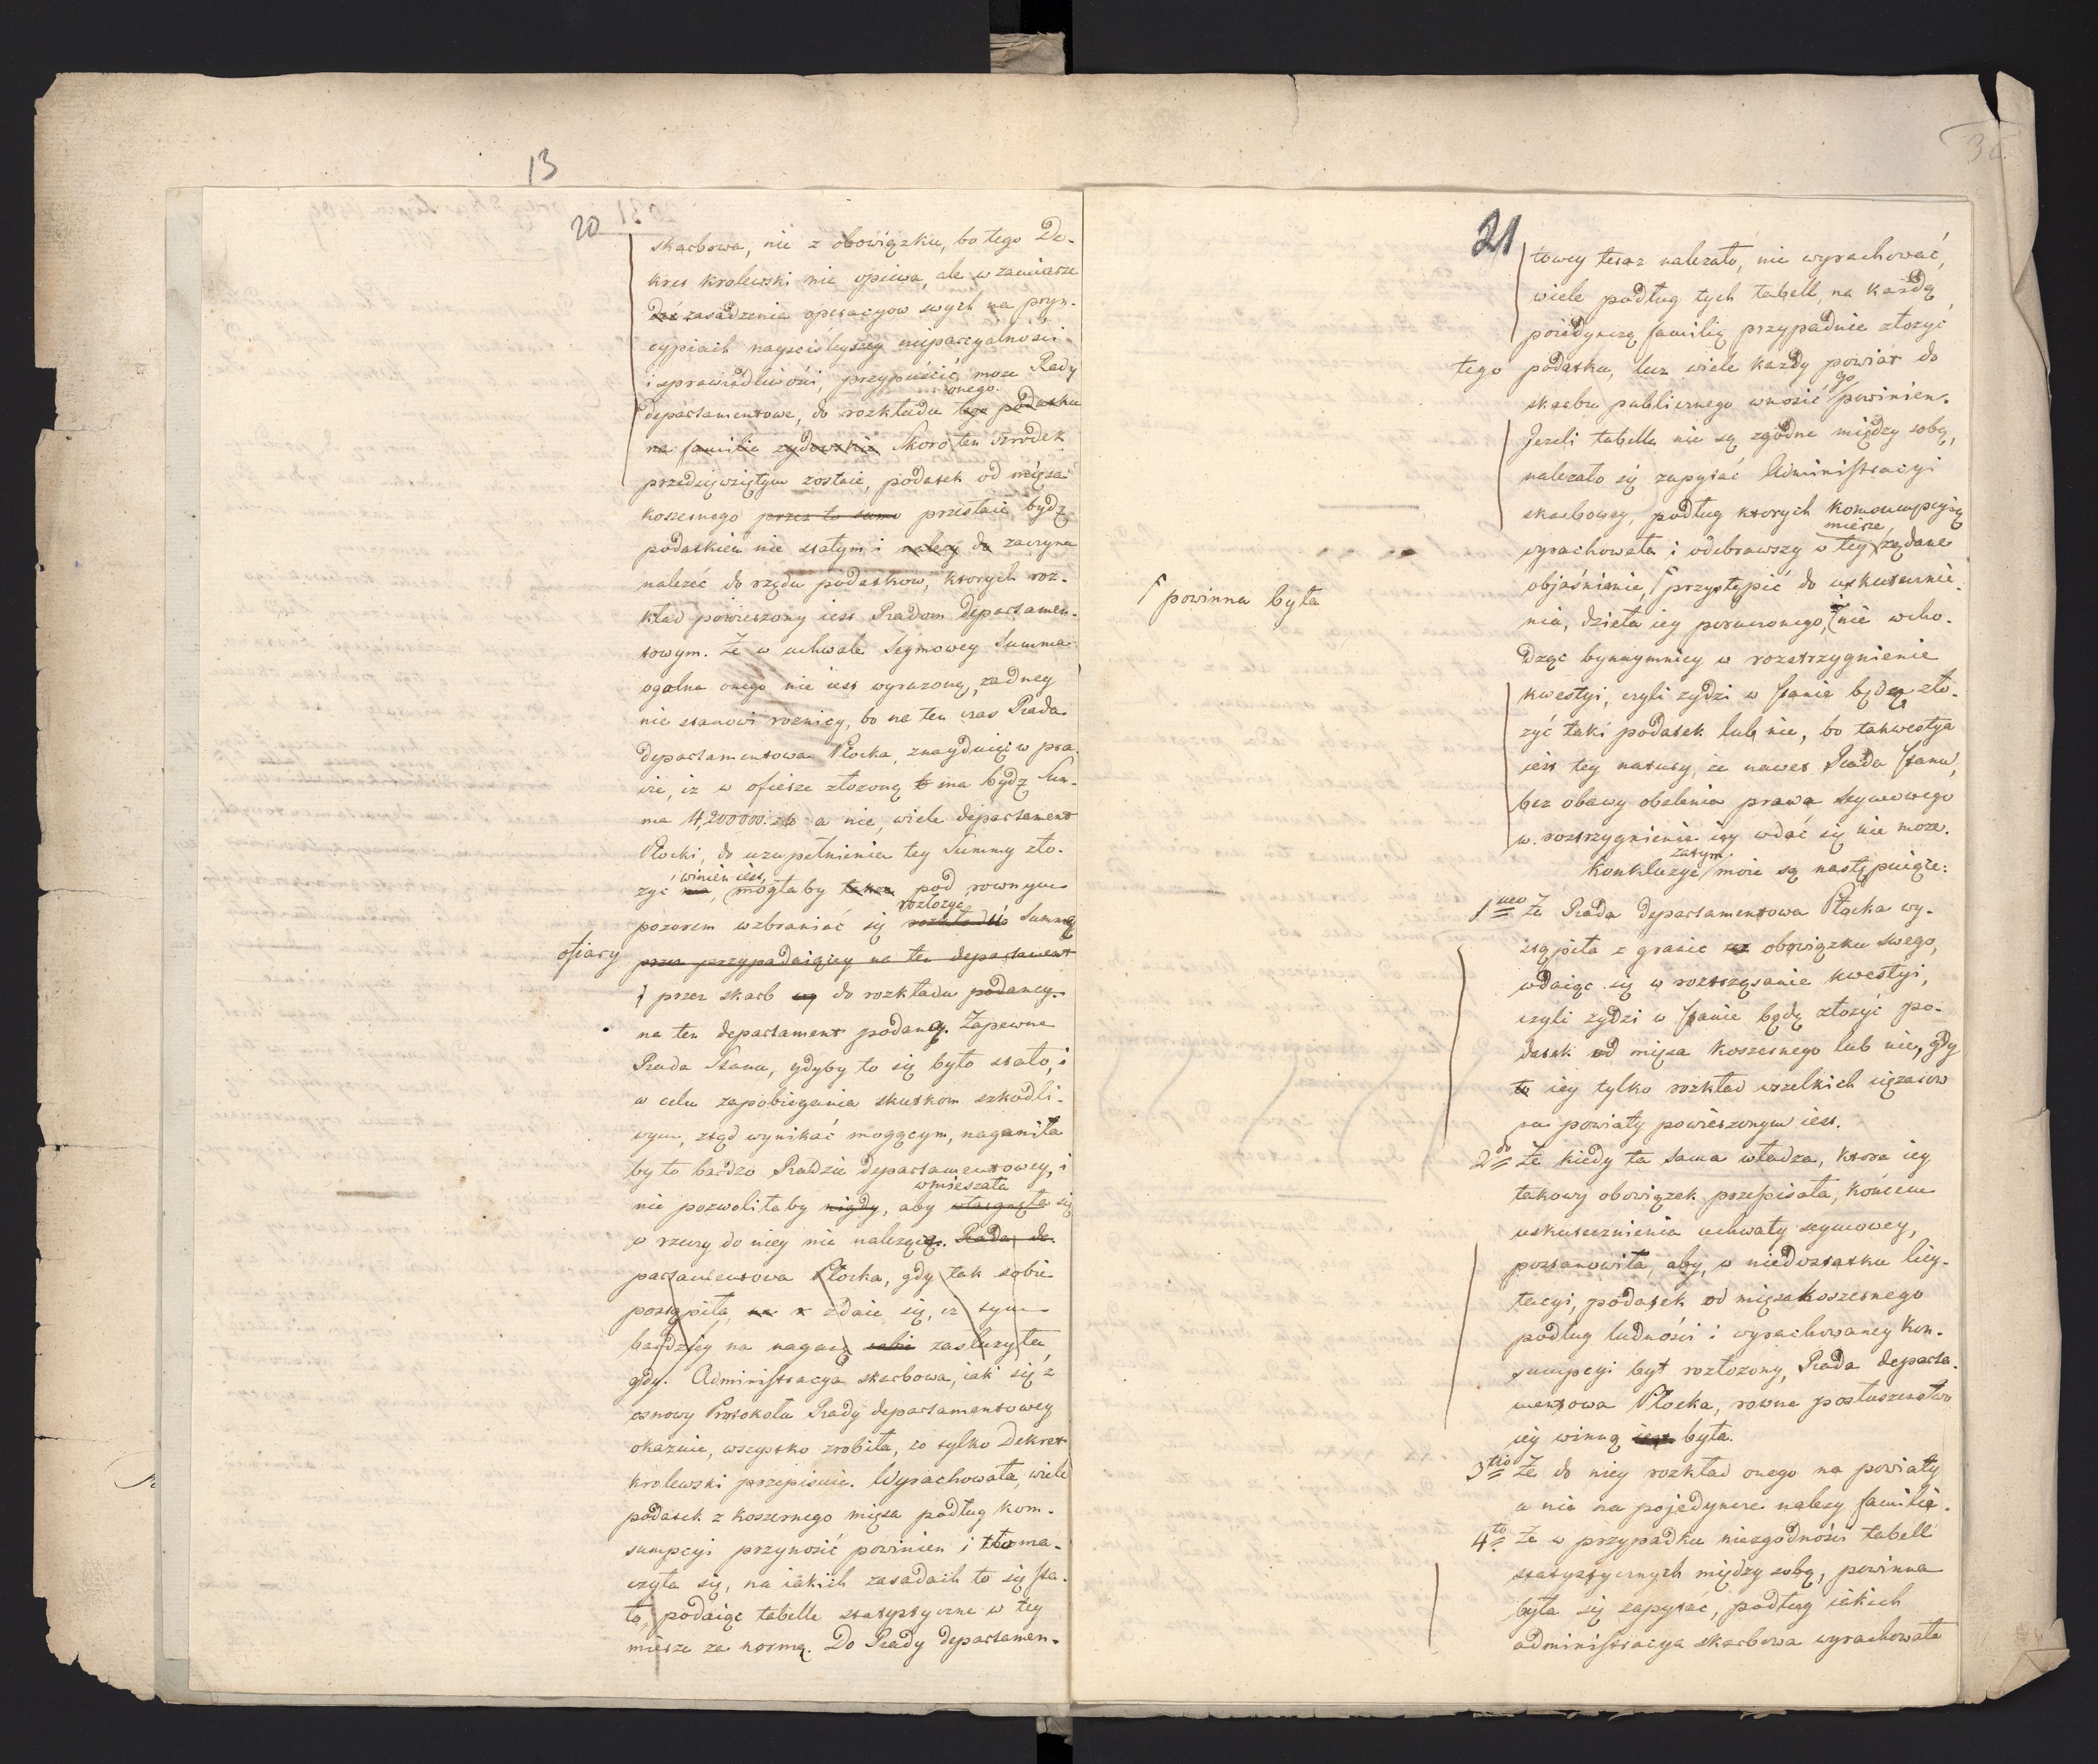 13
20
skarbowa, nie z obowiązku, bo tego De-
kret krolewski nie opiewa, ale w zamiarze
zasadzenia operacyow swych na pryn-
cypiach nayściśleyszey nieparcyalności
i sprawiedliwości, przypuścić może Rady
onego.
departamentowe, do rozkładu tego podatku
na familie zydowskie Skoro ten srodek
przedsięwziętym zostaie, podatek od mięsa
koszernego przez to samo przestaie bydź
podatkiem nie stałym i należy do zaczyna
należeć do rzędu podatkow, ktorych roz-
kład powierzony iest Radom Departamen-
towym. Że w uchwale Seymowey Summa
ogolna onego nie iest wyrażoną, żadney
nie stanowi rożnicy, bo na ten czas Rada
departamentowa Płocka, znayduiąc w pra-
wie, iż w ofierze złożoną ma bydź Sum-
ma 4,200000. zł a nie, wiele departament
Płocki, do uzupełnienia tey Summy zło-
winien iest,
życ ma, mogłaby także pod rownym
rozłożyc
pozorem wzbraniać się rozkładu Summę
ofiary przez przypadaiącey na ten departament
przez skarb do rozkładu podaney.
na ten departament podaną. Zapewne
Rada Stanu, gdyby to się było stało, i
w celu zapobieżenia skutkom szkodli-
wym, ztąd wynikać mogącym, naganiła
by to bardzo Radzie departamentowey, i
wmieszała
nie pozwoliłaby nigdy, aby wtargnęła się
w rzeczy do niey nie należące. Rada de-
partamentowa Płocka, gdy tak sobie
postąpiła, zdaie się, iż tym
bardziey na naganę sobie zasłużyła,
gdy. Administracya skarbowa, iak się z
osnowy Protokołu Rady departamentowey
okazuie, wszystko zrobiła, co tylko Dekret
krolewski przepisuie. Wyrachowała, wiele
podatek z koszernego mięsa podług kon-
sumpcyi przynosić powinien i tłoma-
czyła się, na iakich zasadach to się sta-
ło, podaiąc tabelle statystyczne w tey
mierze za normę. Do Rady departamen-
21
towey teraz należało, nie wyrachować,
wiele podług tych tabell, na każdą
poiedynczą familię przypadnie złożyć
tego podatku, lecz wiele każdy powiat do
go
skarbu publicznego wnosić powinien.
Jeżeli tabelle nie są zgodne między sobą,
należało się zapytać Administracyi
skarbowey, podług ktorych konsumpcyią
mierze,
wyrachowała i odebrawszy w tey żądane
objaśnienie, przystąpić do uskutecznie-
powinna była
nia, dzieła iey poruczonego, i nie wcho-
dząc bynaymniey w rozstrzygnienie
kwestyi, czyli żydzi w stanie będą zło-
żyć taki podatek lub nie, bo takwestya
iest tey natury, że nawet Rada Stanu,
bez obawy obalenia prawa seymowego
w rozstrzygnienie iey wdać się nie może.
zatym
Konkluzye moie są następuiące:
1mo Że Rada departamentowa Płocka wy-
stąpiła z granic obowiązku swego,
wdaiąc się w roztrząsanie kwestyi,
czyli żydzi w stanie będą złożyć po-
datek od mięsa koszernego lub nie, gdy
to iey tylko rozkład wszelkich ciężarow
na powiaty powierzonym iest.
2do Że kiedy ta sama władza, ktora iey
takowy obowiązek przepisała, końcem
uskutecznienia uchwały seymowey,
postanowiła, aby, w niedostatku licy-
tacyi, podatek od mięsa koszernego
podług ludności i wyrachowaney kon-
sumpcyi był rozłożony, Rada departa-
mentowa Płocka, rowne posłuszenstwo
iey winną iest była.
3tio Że do niey rozkład onego na powiaty
a nie na pojedyncze należy familie.
4to Że w przypadku niezgodności tabell
statystycznych między sobą, powinna
była się zapytać, podług iakich
administracya skarbowa wyrachowała